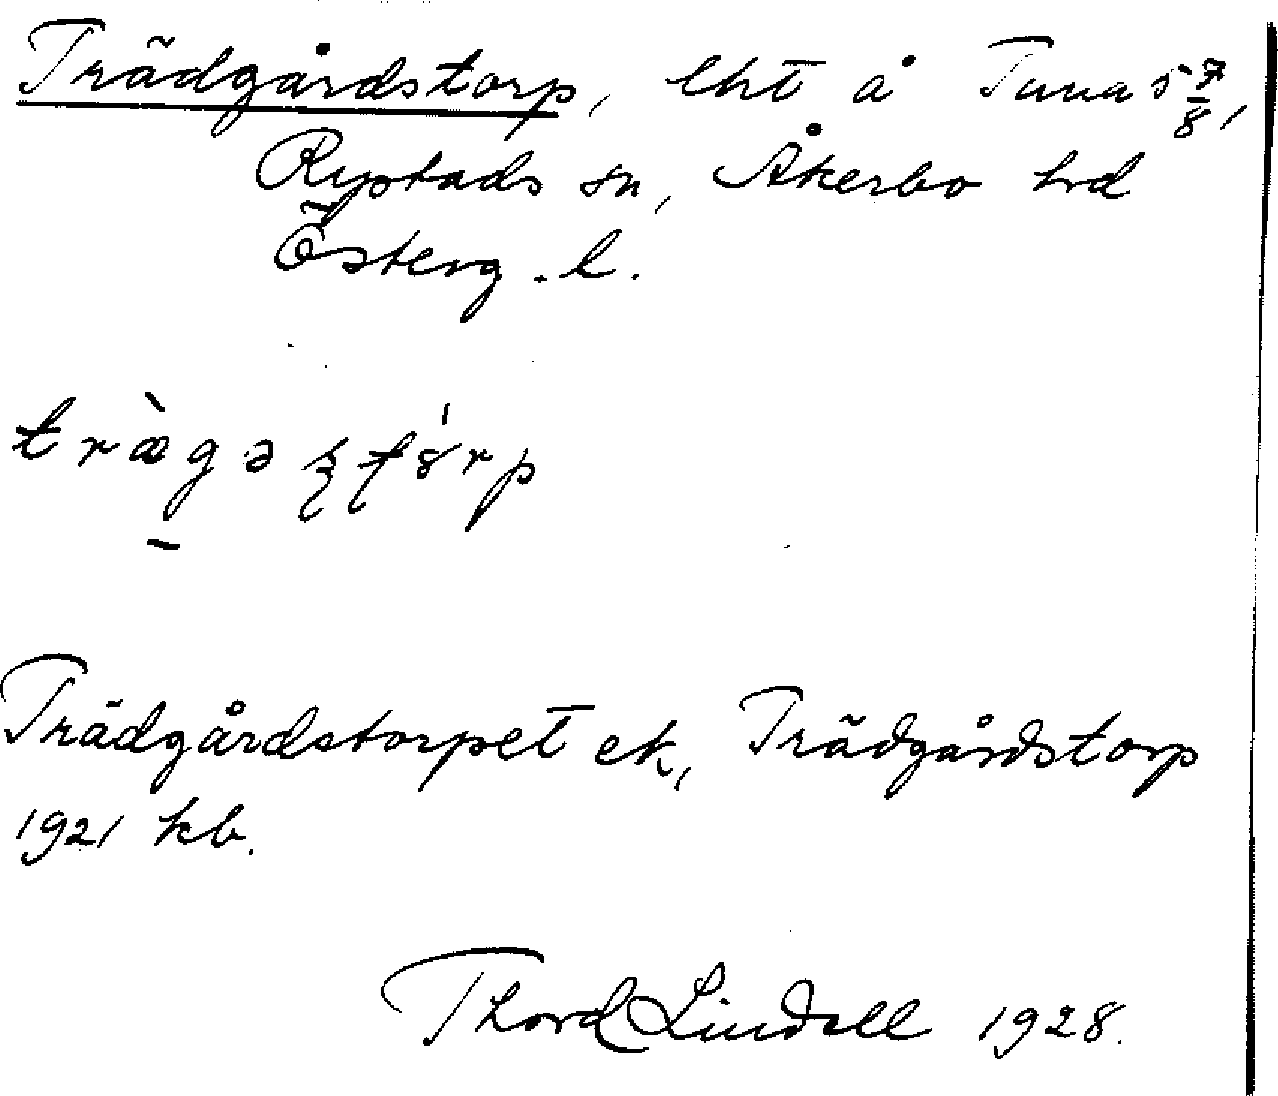 Trädgårdstorp, lht å Tuna 5 7/8,
Rystads sn, Åkerbo hd
Österg. l.
Trädgårdstorpet ek, Trädgårdstorp
1921 kb.
Thord Lindell 1928.